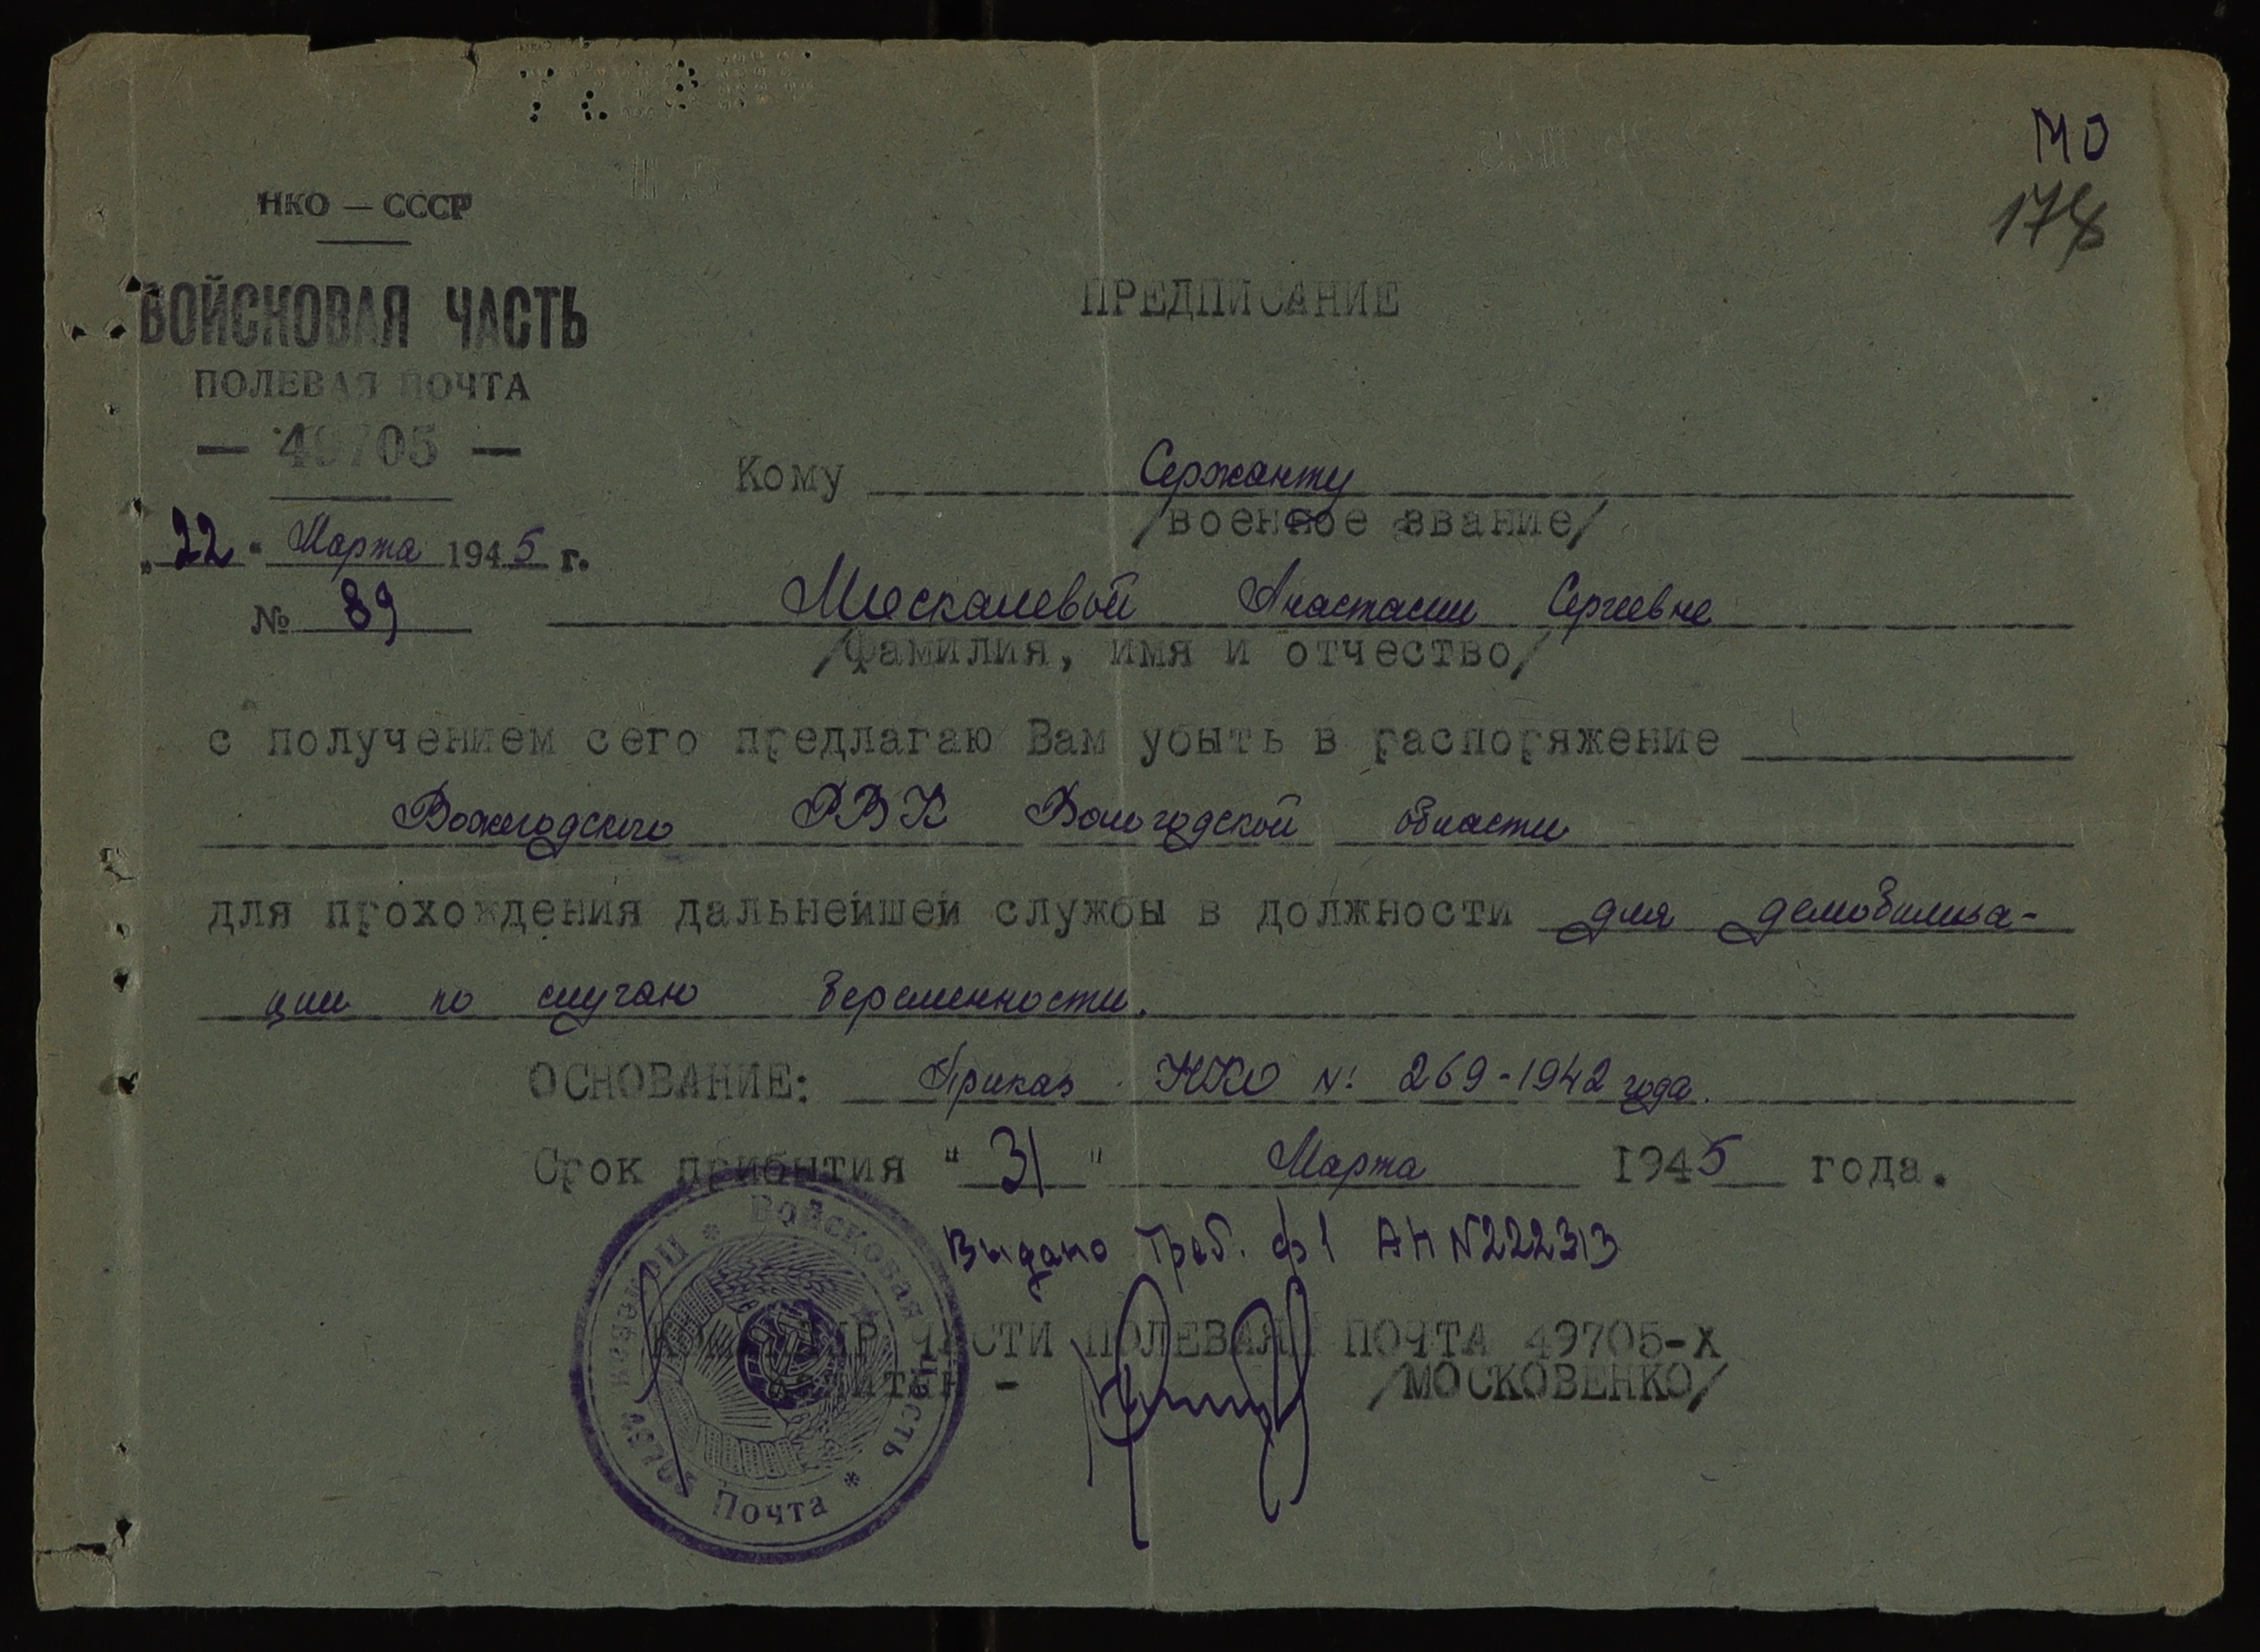 МО
178
НКО — СССР
ВОЙСКОВАЯ ЧАСТЬ
ПОЛЕВАЯ ПОЧТА
— 49705 —
„22" Марта 1945 г.
№ 89
ПРЕДПИСАНИЕ
Кому Сержанту
/военное звание/
Москалевой Анастасии Сергеевне
/фамилия, имя и отчество/
с получением сего предлагаю Вам убыть в распоряжение
Вожегодского РВК Вологодской области
для прохождения дальнейшей службы в должности для демобилиза-
ции по случаю беременности.
ОСНОВАНИЕ: Приказ НКО № 269-1942 года.
Срок прибытия "31" Марта 1945 года.
Выдано треб. ф1 АН N222313
КОМАНДИР ЧАСТИ ПОЛЕВАЯ ПОЧТА 49705-Х
капитан - /МОСКОВЕНКО/
* Войсковая часть * Почта Полевая